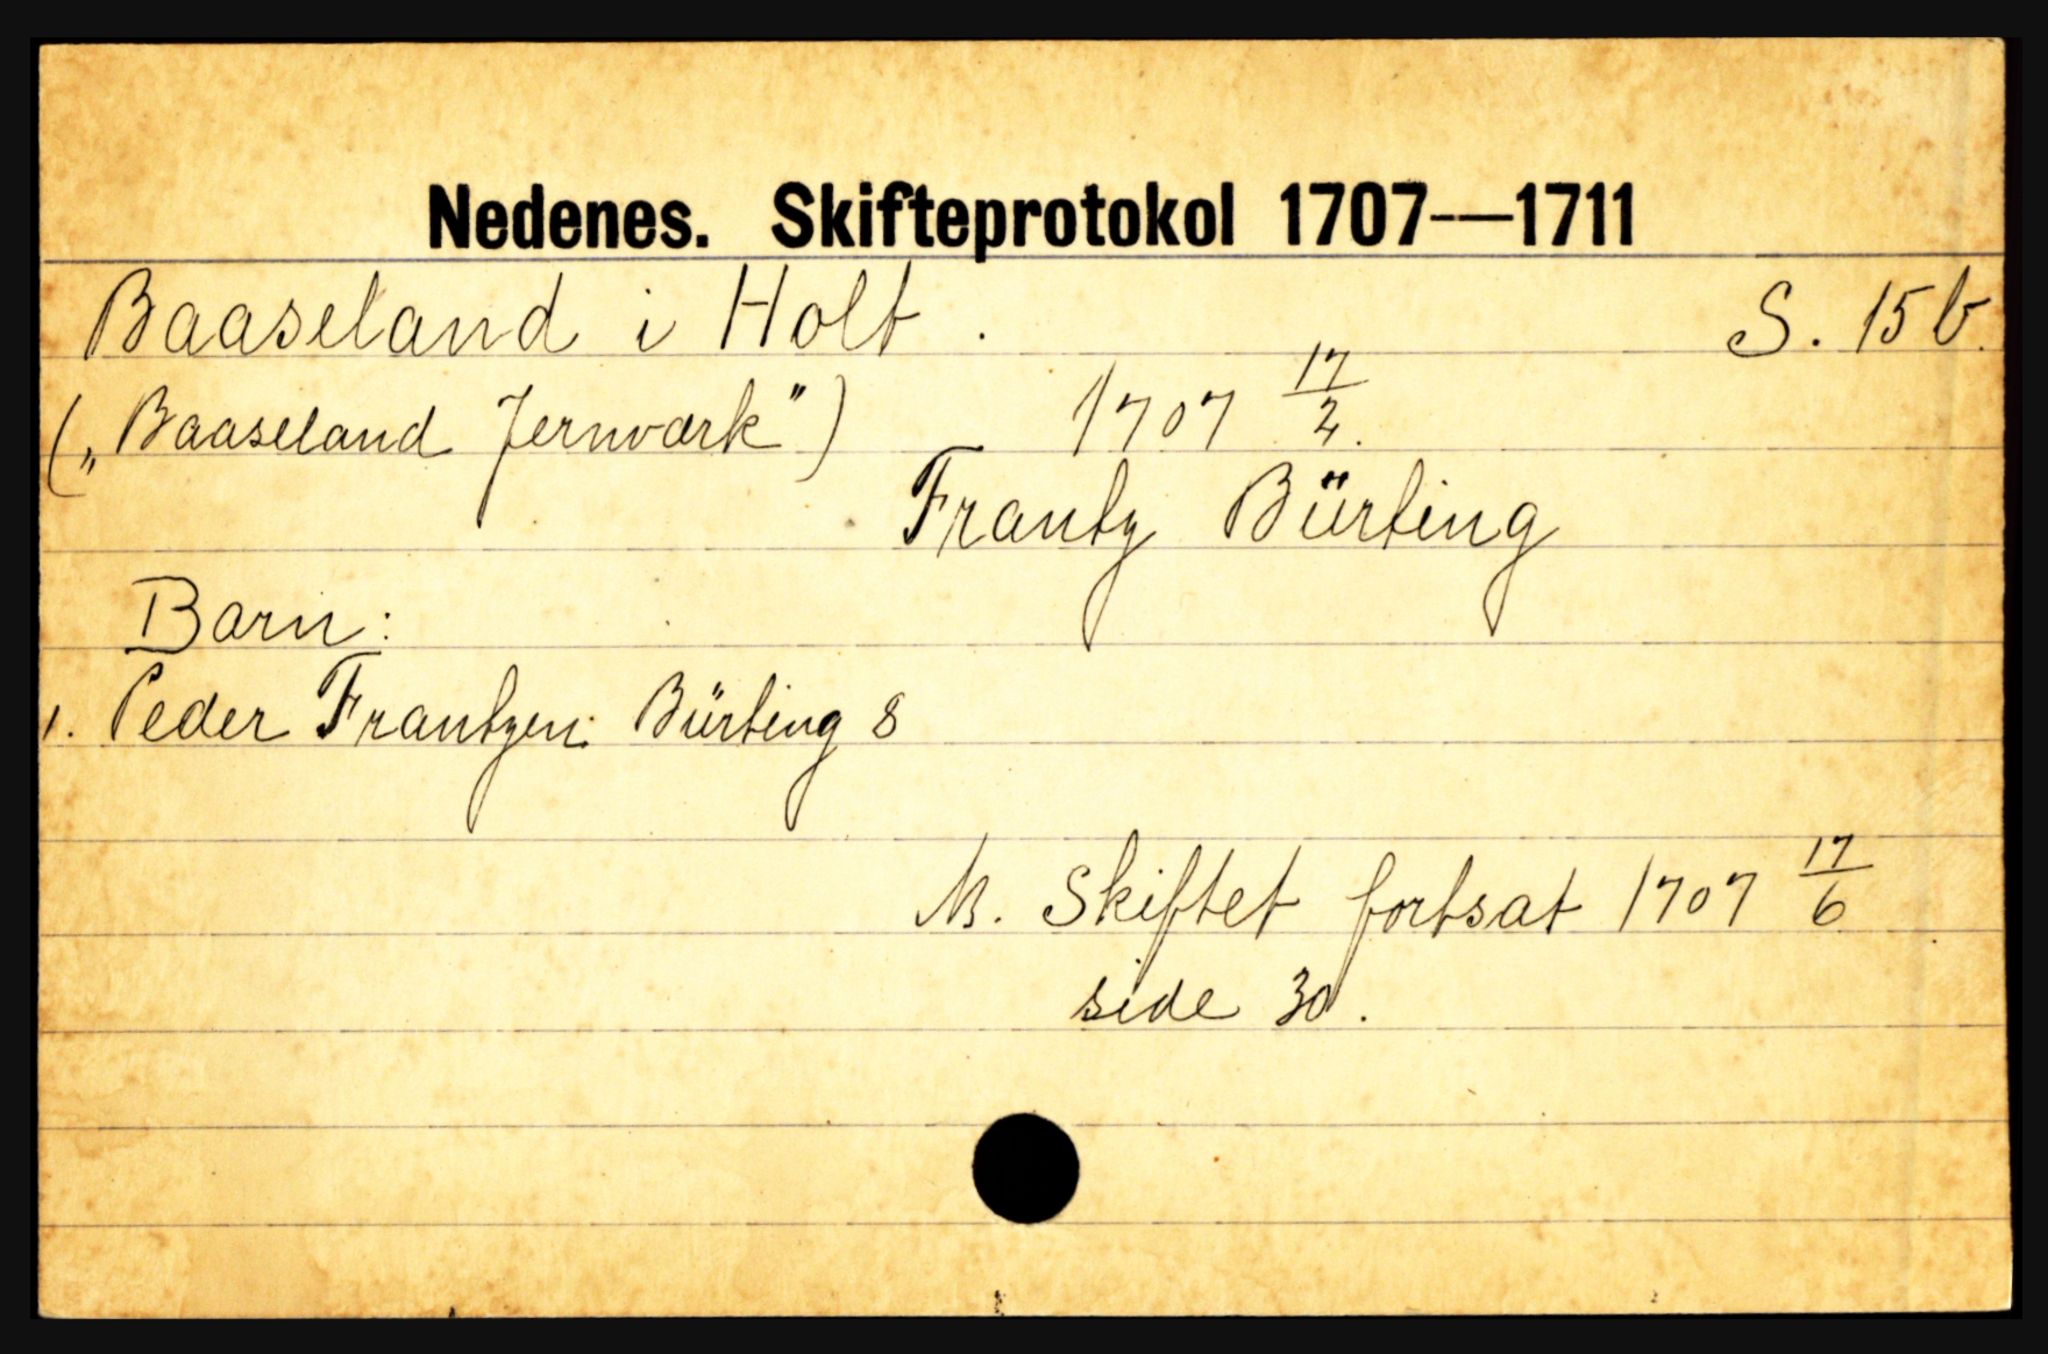 Nedenes. Skifteprotokol 1707-—1711
Baaseland i Holt. S. 15 b.
(„Baaseland Jernværk") 1707 17/2.
Frantz Bürting
Barn:
1. Peder Frantzen Bürting 8
NB. Skiftet fortsat 1707 17/6
side 30.